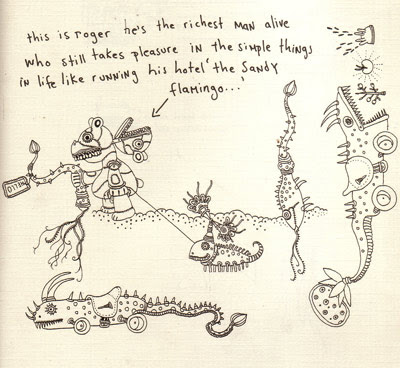 this is roger he's the richest man alive
who still takes pleasure in the simple things
in life like running his hotel 'the sandy
flamingo...'
HELLO